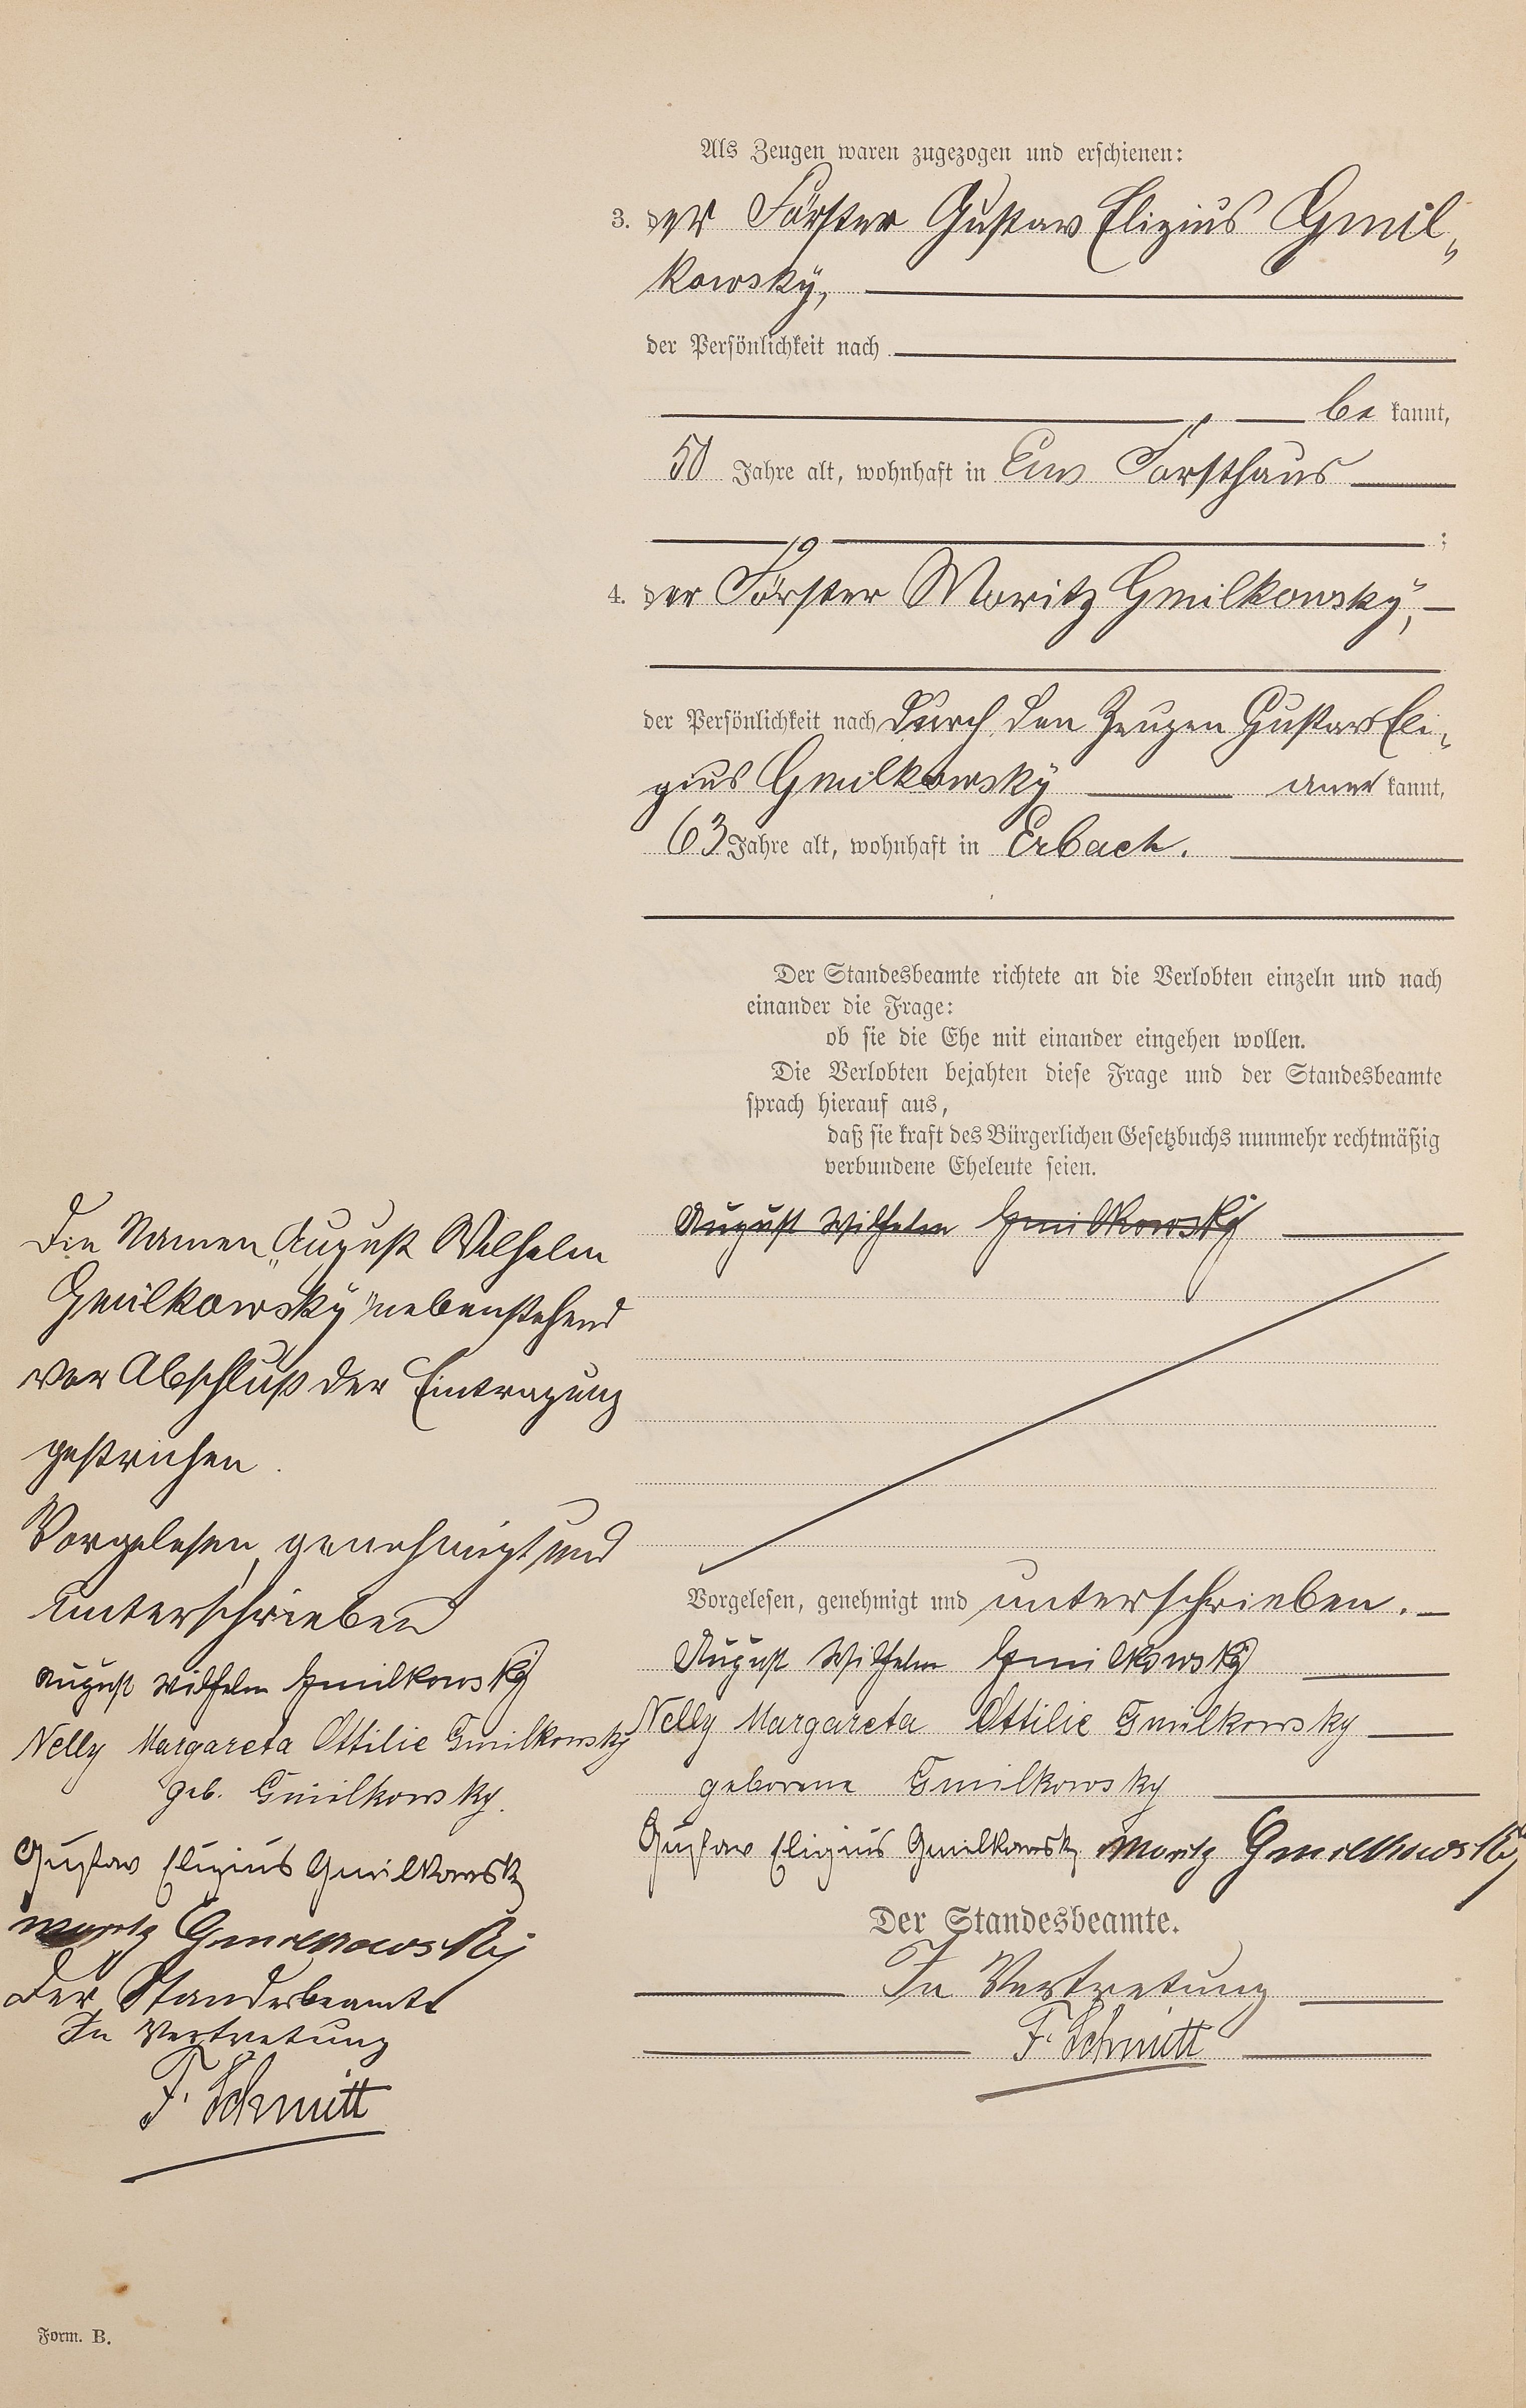 Als Zeugen waren zugezogen und erschienen:
3. der Förster Gustav Eligius Gmil„
kowsky,
der Persönlichkeit nach
be kannt,
50 Jahre alt, wohnhaft in Forsthaus
;
4. der Förster Moritz Gmilkowsky,
der Persönlichkeit nach durch den Zeugen Gustav Eli„
gius Gmilkowsky aner kannt,
63 Jahre alt, wohnhaft in Erbach.
Der Standesbeamte richtete an die Verlobten einzeln und nach
einander die Frage:
ob sie die Ehe mit einander eingehen wollen.
Die Verlobten bejahten diese Frage und der Standesbeamte
sprach hierauf aus,
daß sie kraft des Bürgerlichen Gesetzbuchs nunmehr rechtmäßig
verbundene Eheleute seien.
August Wilhelm Gmilkowsky
Vorgelesen, genehmigt und unterschrieben.
August Wilhelm Gmilkowsky
Nelly Margareta Ottilie Gmilkowsky
geborene Gmilkowsky
Gustav Eligius Gmilkowsky Moritz Gmilkowsky
Der Standesbeamte.
In Vertretung
F. Schmitt
Die Namen „August Wilhelm
Gmilkowsky" nebenstehend
vor Abschluß der Eintragung
gestrichen.
Vorgelesen, genehmigt und
unterschrieben
August Wilhelm Gmilkowsky
Nelly Margareta Ottilie Gmilkowsky
geb. Gmilkowsky.
Gustav Eligius Gmilkowsky
Moritz Gmilkowsky
Der Standesbeamte
In Vertretung
F. Schmitt
Form. B.